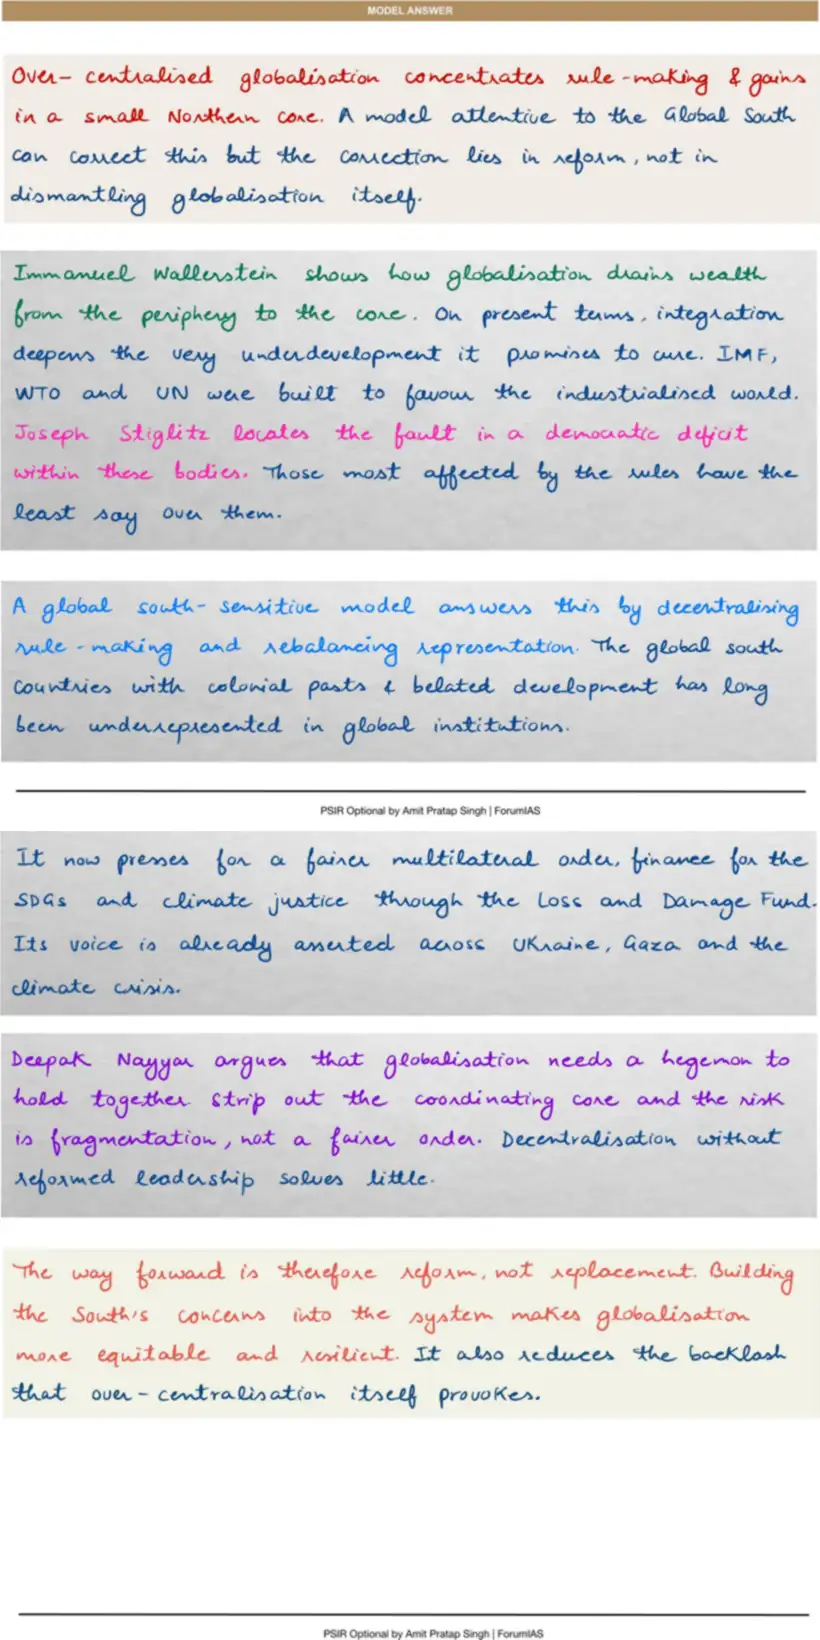 MODEL ANSWER
Over-centralised globalisation concentrates rule-making & gains
in a small Northern core. A model attentive to the Global South
can correct this but the correction lies in reform, not in
dismantling globalisation itself.
Immanuel Wallerstein shows how globalisation drains wealth
from the periphery to the core. On present terms, integration
deepens the very underdevelopment it promises to cure. IMF,
WTO and UN were built to favour the industrialised world.
Joseph Stiglitz locates the fault in a democratic deficit
within these bodies. Those most affected by the rules have the
least say over them.
A global south-sensitive model answers this by decentralising
rule-making and rebalancing representation. The global south
countries with colonial pasts & belated development has long
been underrepresented in global institutions.
PSIR Optional by Amit Pratap Singh | ForumIAS
It now presses for a fairer multilateral order, finance for the
SDGs and climate justice through the Loss and Damage Fund.
Its voice is already asserted across Ukraine, Gaza and the
climate crisis.
Deepak Nayyar argues that globalisation needs a hegemon to
hold together strip out the coordinating core and the risk
is fragmentation, not a fairer order. Decentralisation without
reformed leadership solves little.
The way forward is therefore reform, not replacement. Building
the South's concerns into the system makes globalisation
more equitable and resilient. It also reduces the backlash
that over-centralisation itself provokes.
PSIR Optional by Amit Pratap Singh | ForumIAS